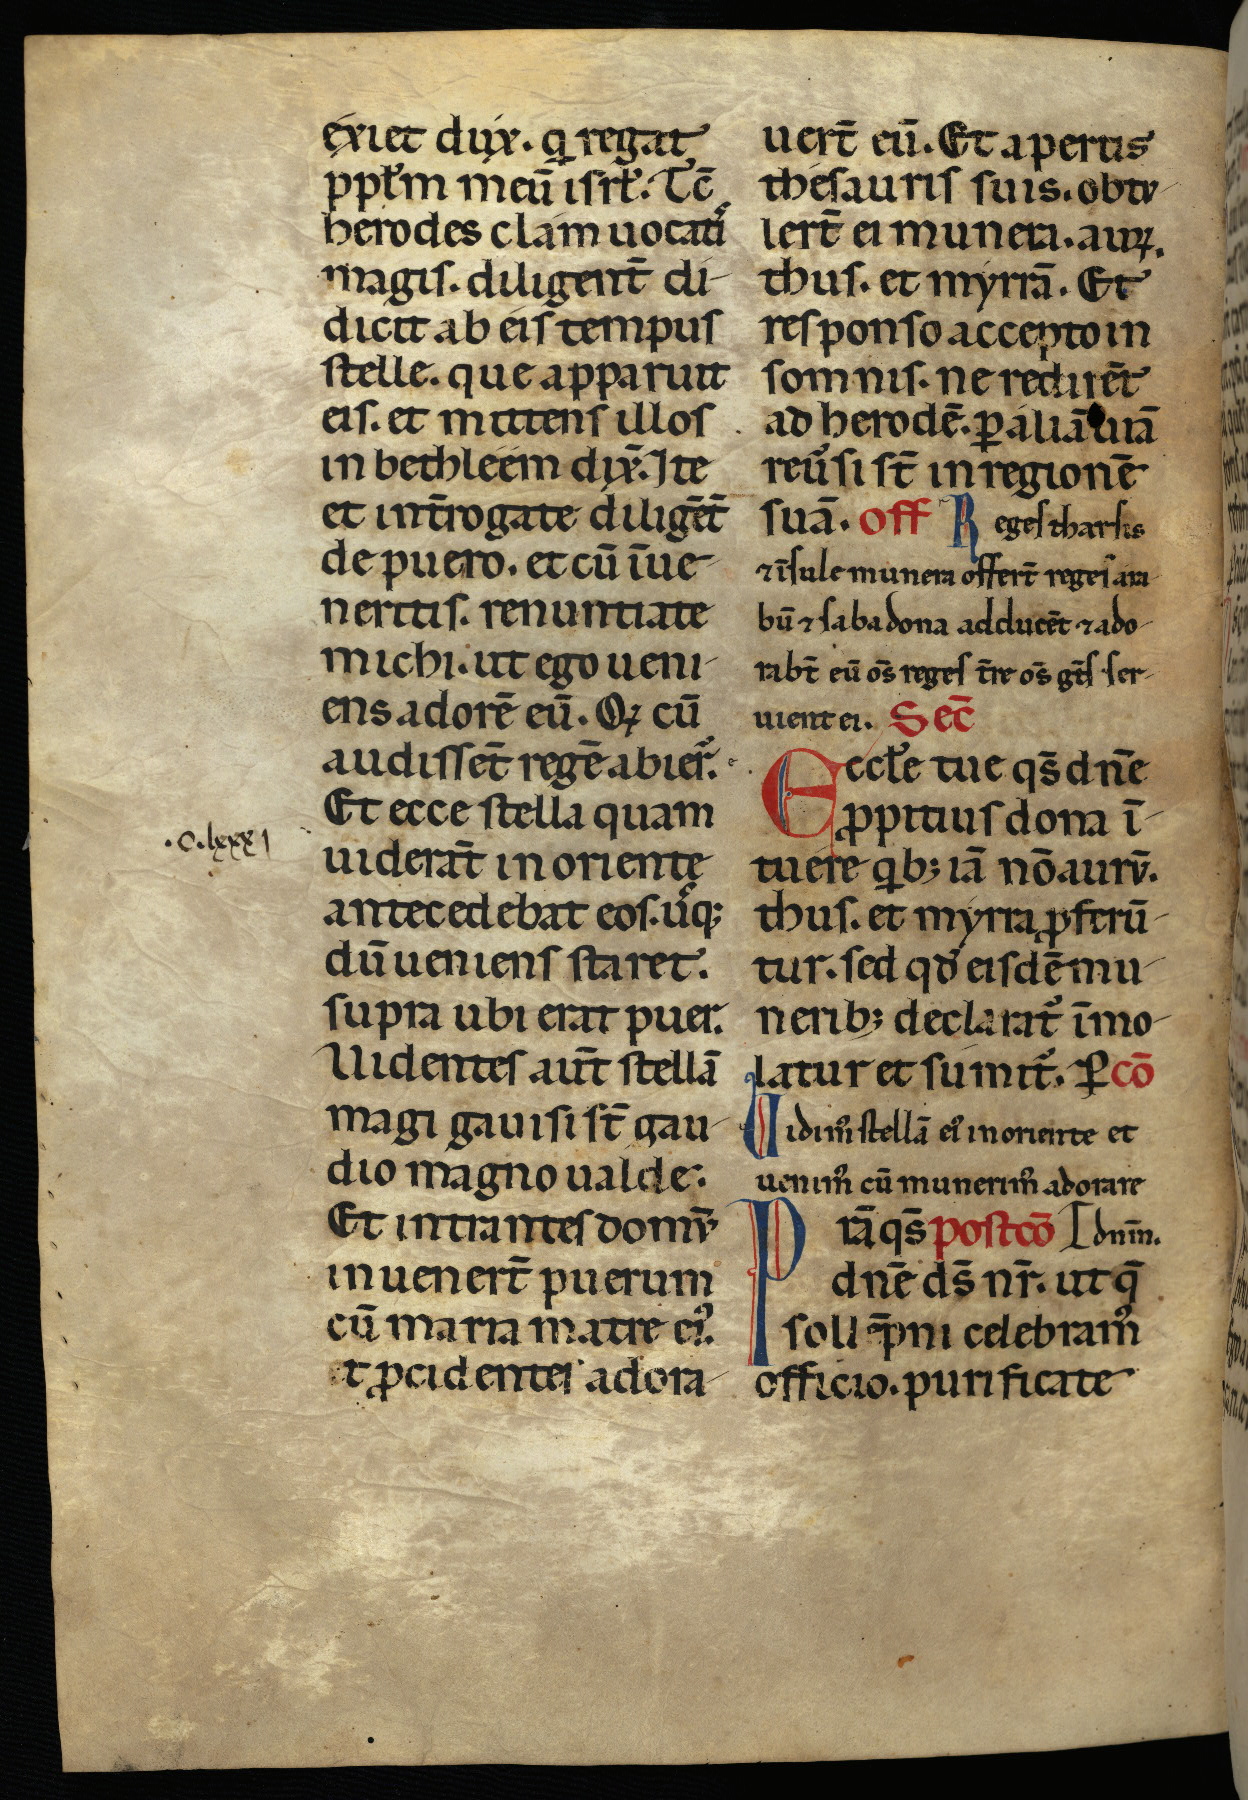 exiet dux. q regat
pplm meū isrł. Tc̄
herodes clam uocatis
magis. diligent̄ di-
dicit ab eis tempus
stelle. que apparuit
eis. et mittens illos
in bethleem dix̄. Ite
et int̄rogate diligēt̄
de puero. et cū īue-
neritis. renuntiate
michi. ut ego ueni-
ens adorē eū. Qꝫ cū
audissēt regē abier̄.
Et ecce stella quam
.c.lxxxı
uiderāt in oriente
antecedebat eos. usqꝫ
dū ueniens staret.
supra ubi erat puer.
Uidentes aūt stellā
magi gauisi st̄ gau-
dio magno ualde.
Et intrantes domū
inuenert̄ puerum
cū maria matre eiꝰ.
t ꝓcidentes adora-
uert̄ eū. Et apertis
thesauris suis. obtu-
lert̄ ei munera. aurꝫ.
thus. et myrrā. Et
responso accepto in
somnis. ne redirēt
ad herodē. ꝑ aliā uiā
reūsi st̄ in regionē
suā. Off Reges tharsis
⁊ īsule munera offert̄ reges ara-
bū ⁊ saba dona adducēt ⁊ ado-
rabt̄ eū om̄s reges t̄re om̄s gt̄s ser-
uient ei. Sec̄
Eccłe tue qs̄ dn̄e
ꝓpitius dona ī-
tuere qibꝫ iā nō aurū.
thus. et myrra ꝓferū-
tur. sed qd̄ eisdē mu-
neribꝫ declarat̉ īmo-
latur et sumit̉. P cō
Uidimꝰ stellā eiꝰ in oriente et
uenimꝰ cū munerim̉ adorare
Prā qs̄ postcō dn̄m.
dn̄e ds̄ nr̄. ut q̄
sollēpni celebramꝰ
officio. purificate